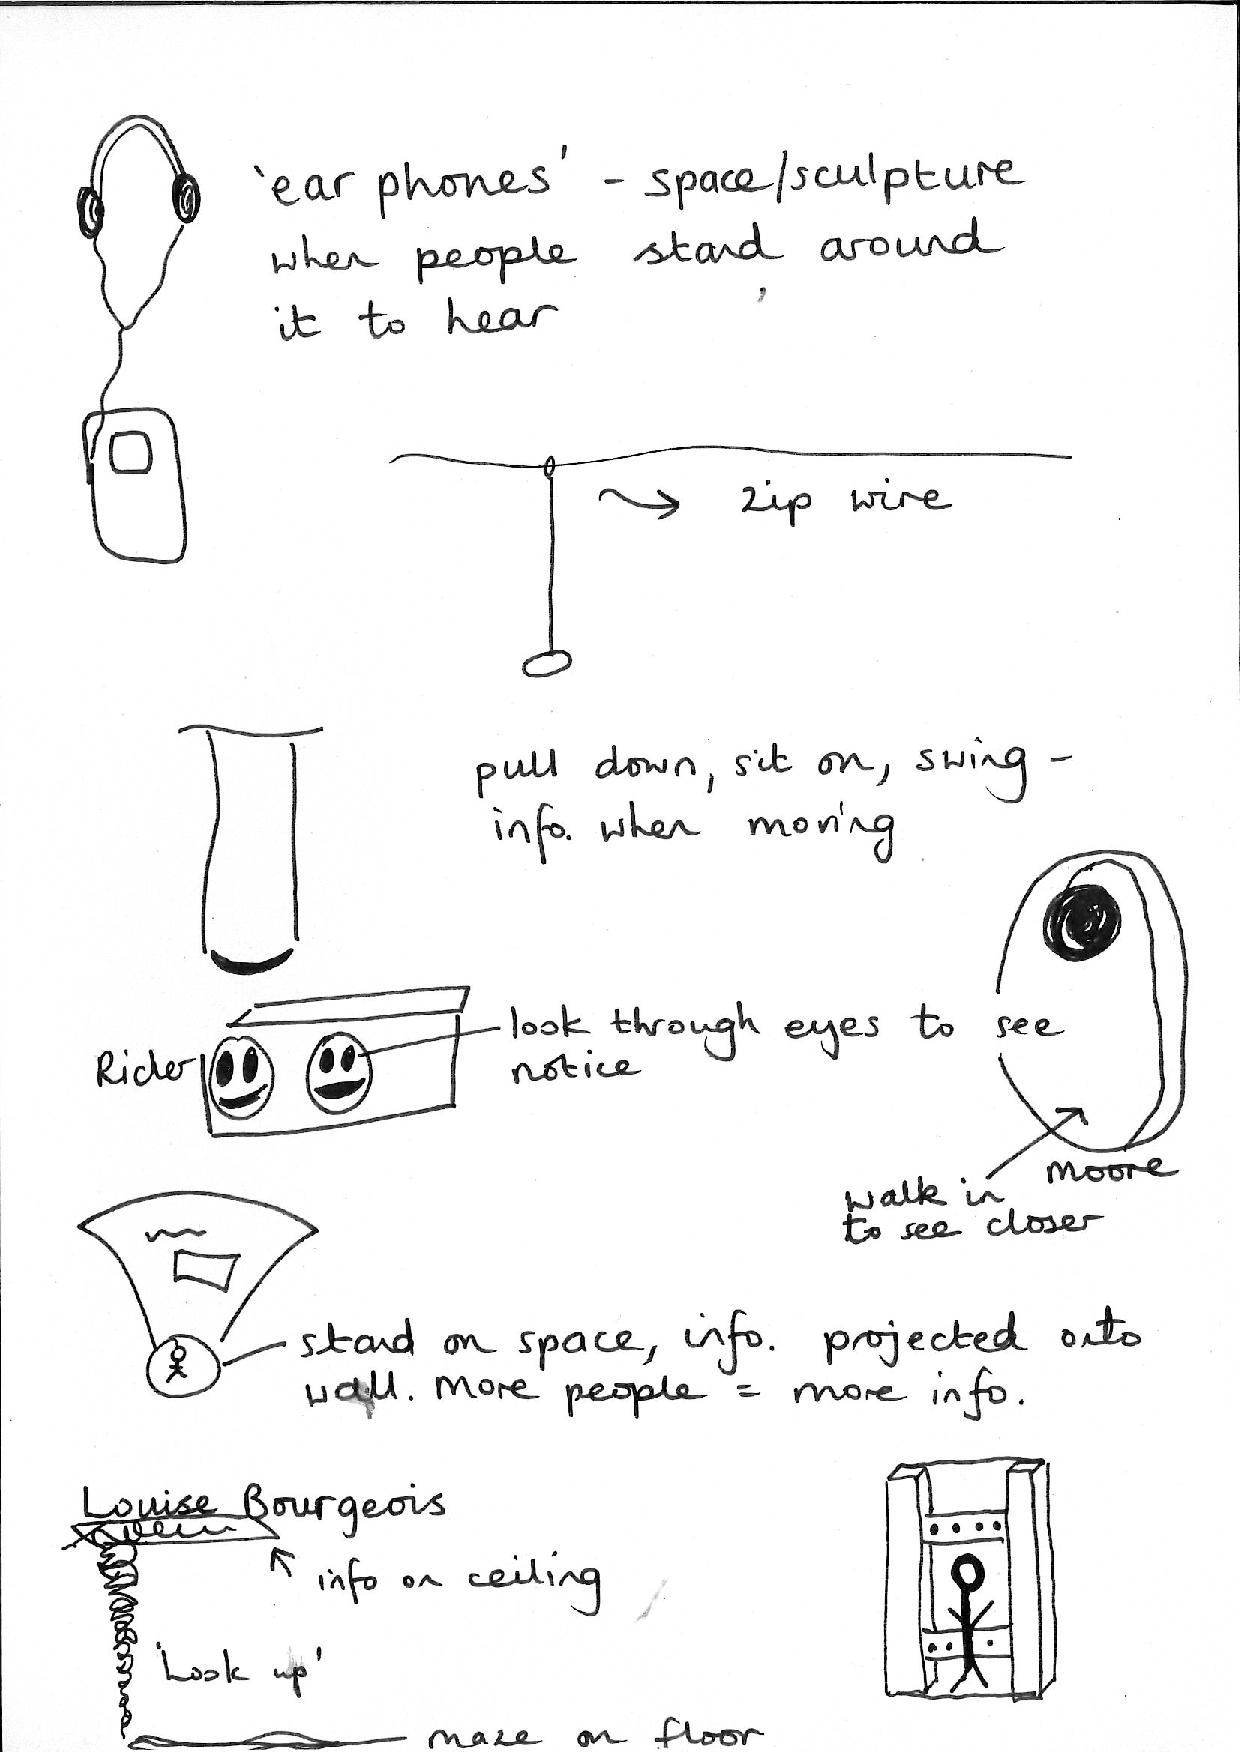 'ear phones' - space/sculpture
when people stand around
it to hear
zip wire
pull down, sit on, swing -
info. when moving
look through eyes to see
notice
Rider
Moore
walk in
to see closer
stand on space, info. projected onto
wall. More people = more info.
Louise Bourgeois
info on ceiling
'Look up'
maze on floor